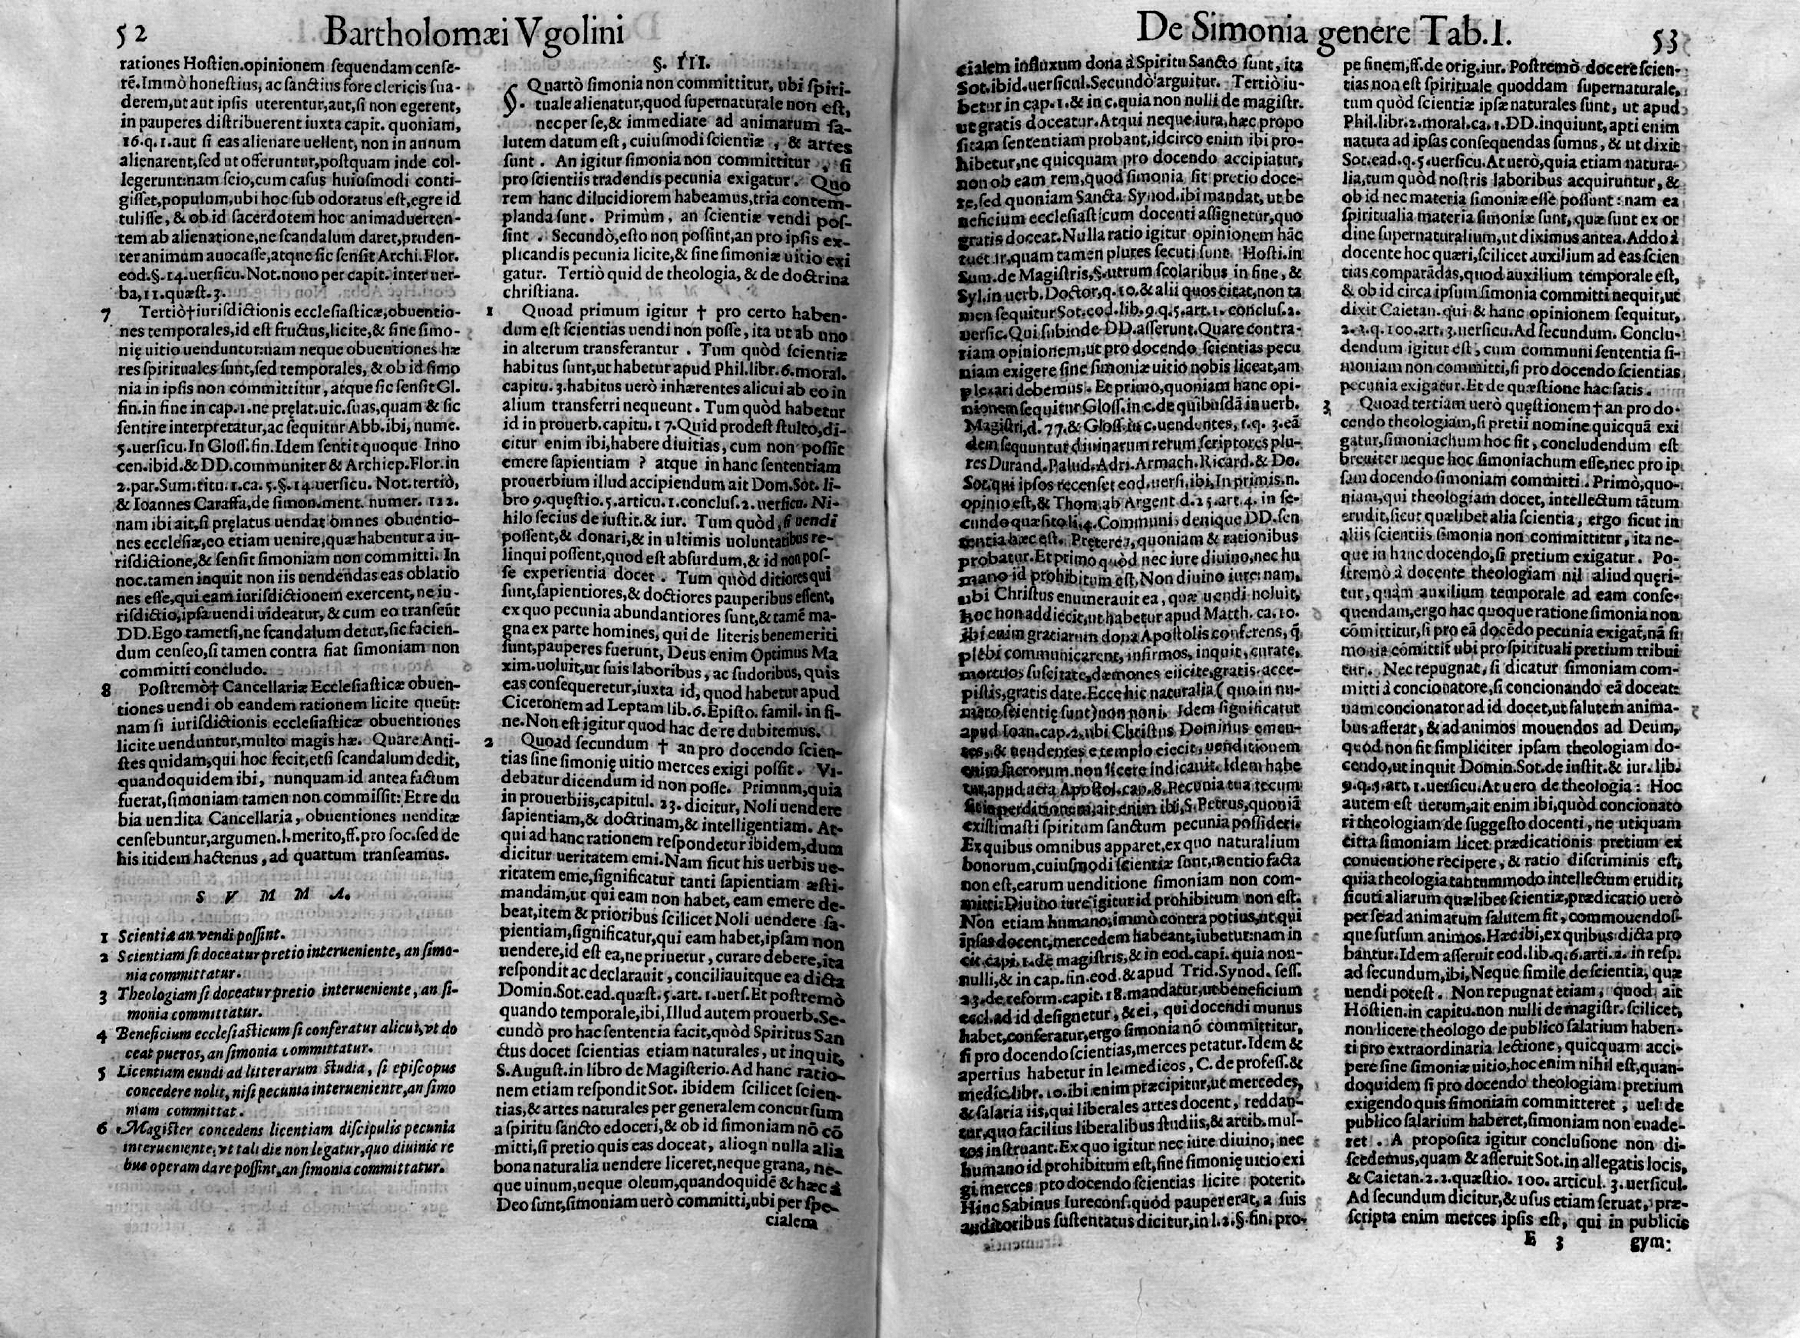 52 Bartholomæi Vgolini
rationes Hostien.opinionem sequendam cense-
rẽ.Immò honestius, ac sanctius fore clericis sua-
derem,ut aut ipsis uterentur,aut,si non egerent,
in pauperes distribuerent iuxta capit. quoniam,
16.q.1.aut si eas alienare uellent, non in annum
alienarent,sed ut offeruntur,postquam inde col-
legerunt:nam scio,cum casus huiusmodi conti-
gisset,populum,ubi hoc sub odoratus est,egre id
tulisse, & ob id sacerdotem hoc animaduerten-
tem ab alienatione,ne scandalum daret,pruden-
ter animum auocasse,atque sic sensit Archi.Flor.
eod.§.14.uersicu.Not.nono per capit. inter uer-
ba,11.quæst.3.
7 Tertiò†iurisdictionis ecclesiasticæ,obuentio-
nes temporales,id est fructus,licite,& sine simo-
nię uitio uenduntur:nam neque obuentiones hæ
res spirituales sunt,sed temporales, & ob id simo
nia in ipsis non committitur, atque sic sensit Gl.
fin.in fine in cap.1.ne prelat.uic.suas,quam & sic
sentire interpretatur,ac sequitur Abb.ibi, nume.
5.uersicu.In Gloss.fin.Idem sentit quoque Inno
cen.ibid.& DD.communiter & Archiep.Flor.in
2.par.Sum.titu.1.ca.5.§.14.uersicu. Not.tertiò,
& Ioannes Caraffa,de simon.ment. numer. 122.
nam ibi ait,si pręlatus uendat omnes obuentio-
nes ecclesiæ,eo etiam uenire,quæ habentur a iu-
risdictione,& sensit simoniam non committi. In
noc.tamen inquit non iis uendendas eas oblatio
nes esse,qui eam iurisdictionem exercent,ne iu-
risdictio,ipsa uendi uideatur, & cum eo transeũt
DD.Ego tametsi,ne scandalum detur,sic facien-
dum censeo,si tamen contra fiat simoniam non
committi concludo.
8 Postremò† Cancellariæ Ecclesiasticæ obuen-
tiones uendi ob eandem rationem licite queũt:
nam si iurisdictionis ecclesiasticæ obuentiones
licite uenduntur,multo magis hæ. Quare Anti-
stes quidam,qui hoc fecit,etsi scandalum dedit,
quandoquidem ibi, nunquam id antea factum
fuerat,simoniam tamen non commissit: Et re du
bia uendita Cancellaria, obuentiones uenditæ
censebuntur,argumen.l.merito,ff.pro soc.sed de
his itidem hactenus, ad quartum transeamus.
S V M M A.
1 Scientiæ an vendi possint.
2 Scientiam si doceatur pretio interueniente, an simo-
nia committatur.
3 Theologiam si doceatur pretio interueniente, an si-
monia committatur.
4 Beneficium ecclesiasticum si conferatur alicui,vt do
ceat pueros, an simonia committatur.
5 Licentiam eundi ad litterarum studia, si episcopus
concedere nolit, nisi pecunia interueniente,an simo
niam committat.
6 Magister concedens licentiam discipulis pecunia
interueniente, vt tali die non legatur, quo diuinis re
bus operam dare possint,an simonia committatur.
§. III.
§. Quartò simonia non committitur, ubi spiri-
tuale alienatur,quod supernaturale non est,
nec per se,& immediate ad animarum sa-
lutem datum est, cuiusmodi scientiæ, & artes
sunt. An igitur simonia non committitur, si
pro scientiis tradendis pecunia exigatur. Quo
rem hanc dilucidiorem habeamus,tria contem-
planda sunt. Primum, an scientiæ vendi pos-
sint. Secundò,esto non possint,an pro ipsis ex-
plicandis pecunia licite,& sine simoniæ uitio exi
gatur. Tertiò quid de theologia, & de doctrina
christiana.
1 Quoad primum igitur † pro certo haben-
dum est scientias uendi non posse, ita ut ab uno
in alterum transferantur. Tum quòd scientiæ
habitus sunt,ut habetur apud Phil.libr.6.moral.
capitu.3.habitus uerò inhærentes alicui ab eo in
alium transferri nequeunt. Tum quòd habetur
id in prouerb.capitu.17.Quid prodest stulto,di-
citur enim ibi,habere diuitias, cum non possit
emere sapientiam? atque in hanc sententiam
prouerbium illud accipiendum ait Dom.Sot. li-
bro 9.quęstio.5.articu.1.conclus.2.uersicu. Ni-
hilo secius de iustit.& iur. Tum quòd, si uendi
possent,& donari,& in ultimis uoluntatibus re-
linqui possent,quod est absurdum,& id non pos-
se experientia docet. Tum quòd ditiores qui
sunt,sapientiores,& doctiores pauperibus essent,
ex quo pecunia abundantiores sunt,& tamẽ ma-
gna ex parte homines, qui de literis benemeriti
sunt,pauperes fuerunt, Deus enim Optimus Ma
xim.uoluit,ut suis laboribus, ac sudoribus, quis
eas consequeretur,iuxta id, quod habetur apud
Ciceronem ad Leptam lib.6.Episto. famil. in fi-
ne.Non est igitur quod hac de re dubitemus.
2 Quoad secundum † an pro docendo scien-
tias sine simonię uitio merces exigi possit. Vi-
debatur dicendum id non posse. Primum,quia
in prouerbiis,capitul. 23.dicitur, Noli uendere
sapientiam,& doctrinam,& intelligentiam. At-
qui ad hanc rationem respondetur ibidem,dum
dicitur ueritatem emi.Nam sicut his uerbis ue-
ritatem eme,significatur tanti sapientiam æsti-
mandam,ut qui eam non habet, eam emere de-
beat,item & prioribus scilicet Noli uendere sa-
pientiam,significatur,qui eam habet,ipsam non
uendere,id est ea,ne priuetur, curare debere,ita
respondit ac declarauit, conciliauitque ea dicta
Domin.Sot.ead.quæst.5.art.1.uers.Et postremò
quando temporale,ibi,Illud autem prouerb.Se-
cundò pro hac sententia facit,quòd Spiritus San
ctus docet scientias etiam naturales, ut inquit,
S.August.in libro de Magisterio.Ad hanc ratio-
nem etiam respondit Sot. ibidem scilicet scien-
tias,& artes naturales per generalem concursum
a spiritu sancto edoceri,& ob id simoniam nõ cõ
mitti,si pretio quis eas doceat, alioqn nulla alia
bona naturalia uendere liceret,neque grana, ne-
que uinum,neque oleum,quandoquidẽ & hæc à
Deo sunt,simoniam uerò committi,ubi per spe-
cialem
De Simonia genere Tab.I. 53
cialem influxum dona à Spiritu Sancto sunt, ita
Sot.ibid.uersicul.Secundò arguitur. Tertiò iu-
betur in cap.1.& in c.quia non nulli de magistr.
ut gratis doceatur.Atqui neque iura,hæc propo
sitam sententiam probant,idcirco enim ibi pro-
hibetur,ne quicquam pro docendo accipiatur,
non ob eam rem,quod simonia sit pretio doce-
re,sed quoniam Sancta Synod.ibi mandat, ut be
neficium ecclesiasticum docenti assignetur,quo
gratis doceat.Nulla ratio igitur opinionem hãc
tuetur,quam tamen plures secuti sunt Hosti.in
Sum.de Magistris,§.utrum scolaribus in fine, &
Syl.in uerb.Doctor,q.10,& alii quos citat,non ta
men sequitur Sot.eod.lib.9.q.5.art.1.conclus.2.
uersic.Qui subinde DD.asserunt.Quare contra-
riam opinionem,ut pro docendo scientias pecu
niam exigere sine simoniæ uitio nobis liceat,am
plexari debemus. Et primo,quoniam hanc opi-
nionem sequitur Gloss.in c.de quibusdã in uerb.
Magistri,d.77,& Gloss.in c.uendentes,1.q.3.eã
dem sequuntur diuinarum rerum scriptores plu-
res Durand.Palud.Adri.Armach.Ricard.& Do.
Sot.qui ipsos recenset eod.uersi.ibi,In primis.n.
opinio est,& Thom.ab Argent d.25.art.4. in se-
cundo quæsito li.4.Communi denique DD.sen
tentia hæc est. Preterea, quoniam & rationibus
probatur.Et primo quòd nec iure diuino,nec hu
mano id prohibitum est,Non diuino iure: nam,
ubi Christus enumerauit ea, quæ uendi noluit,
hoc non addiecit,ut habetur apud Matth. ca.10.
ibi enim gratiarum dona Apostolis conferens, q̃
plebi communicarent, infirmos, inquit, curate,
mortuos suscitate,dæmones eiicite,gratis acce-
pistis,gratis date.Ecce hic naturalia( quo in nu-
mero scientię sunt)non poni. Idem significatur
apud Ioan.cap.2.ubi Christus Dominus emen-
tes,& uendentes e templo eiecit, uenditionem
enim sacrorum non licere indicauit.Idem habe
tur,apud acta Apostol.cap.8.Pecunia tua tecum
sit in perditionem,ait enim ibi,S.Petrus,quoniã
existimasti spiritum sanctum pecunia possideri.
Ex quibus omnibus apparet,ex quo naturalium
bonorum,cuiusmodi scientiæ sunt,mentio facta
non est,earum uenditione simoniam non com-
mitti:Diuino iure igitur id prohibitum non est.
Non etiam humano,immò contra potius,ut qui
ipsas docent,mercedem habeant,iubetur:nam in
cit.capi.1.de magistris,& in eod.capi. quia non-
nulli,& in cap.fin.eod.& apud Trid.Synod. sess.
23.de reform.capit.18.mandatur,ut beneficium
eccl.ad id designetur, & ei, qui docendi munus
habet,conferatur,ergo simonia nõ committitur,
si pro docendo scientias,merces petatur.Idem &
apertius habetur in le.medicos, C. de profess.&
medic.libr.10.ibi enim præcipitur,ut mercedes,
& salaria iis,qui liberales artes docent, reddan-
tur,quo facilius liberalibus studiis,& artib.mul-
tos instruant.Ex quo igitur nec iure diuino, nec
humano id prohibitum est,sine simonię uitio exi
gi merces pro docendo scientias licite poterit.
Hinc Sabinus Iureconf.quòd pauper erat, a suis
auditoribus sustentatus dicitur,in l.2.§.fin.pro-
pe finem,ff.de orig.iur. Postremò docere scien-
tias non est spirituale quoddam supernaturale,
tum quòd scientiæ ipsæ naturales sunt, ut apud
Phil.libr.2.moral.ca.1.DD.inquiunt,apti enim
natura ad ipsas consequendas sumus, & ut dixit
Sot.ead.q.5.uersicu.At uerò,quia etiam natura-
lia,tum quòd nostris laboribus acquiruntur, &
ob id nec materia simoniæ esse possunt: nam ea
spiritualia materia simoniæ sunt,quæ sunt ex or
dine supernaturalium,ut diximus antea.Addo à
docente hoc quæri,scilicet auxilium ad eas scien
tias comparãdas,quod auxilium temporale est,
& ob id circa ipsum simonia committi nequit,ut
dixit Caietan.qui & hanc opinionem sequitur,
2.2.q.100.art.3.uersicu.Ad secundum. Conclu-
dendum igitur est, cum communi sententia si-
moniam non committi,si pro docendo scientias
pecunia exigatur.Et de quæstione hac satis.
3 Quoad tertiam uerò quęstionem† an pro do-
cendo theologiam,si pretii nomine quicquã exi
gatur,simoniachum hoc sit, concludendum est
breuiter neque hoc simoniachum esse,nec pro ip
sam docendo simoniam committi. Primò,quo-
niam,qui theologiam docet, intellectum tãtum
erudit,sicut quælibet alia scientia, ergo sicut in
aliis scientiis simonia non committitur, ita ne-
que in hanc docendo,si pretium exigatur. Po-
stremò à docente theologiam nil aliud quęri-
tur, quàm auxilium temporale ad eam conse-
quendam,ergo hac quoque ratione simonia non
cõmittitur,si pro eã docẽdo pecunia exigat,nã si
monia cõmittit ubi pro spirituali pretium tribui
tur. Nec repugnat, si dicatur simoniam com-
mitti à concionatore,si concionando eã doceat:
nam concionator ad id docet,ut salutem anima-
bus afferat, & ad animos mouendos ad Deum,
quod non fit simpliciter ipsam theologiam do-
cendo,ut inquit Domin.Sot.de iustit.& iur. lib.
9.q.5.art.1.uersicu.At uero de theologia: Hoc
autem est uerum,ait enim ibi,quòd concionato
ri theologiam de suggesto docenti, ne utiquam
citra simoniam licet prædicationis pretium ex
conuentione recipere, & ratio discriminis est,
quia theologia tantummodo intellectum erudit,
sicuti aliarum quælibet scientiæ,prædicatio uerò
per se ad animarum salutem fit, commouendos-
que sursum animos.Hæc ibi,ex quibus dicta pro
bantur.Idem asseruit eod.lib.q.6.arti.2.in resp.
ad secundum,ibi,Neque simile de scientia, quæ
uendi potest. Non repugnat etiam, quod ait
Hostien.in capitu.non nulli de magistr. scilicet,
non licere theologo de publico salarium haben-
ti pro extraordinaria lectione, quicquam acci-
pere sine simoniæ uitio,hoc enim nihil est,quan-
doquidem si pro docendo theologiam pretium
exigendo quis simoniam committeret, uel de
publico salarium haberet,simoniam non euade-
ret. A proposita igitur conclusione non di-
scedemus,quam & asseruit Sot.in allegatis locis,
& Caietan.2.2.quæstio.100.articul.3.uersicul.
Ad secundum dicitur,& usus etiam seruat, præ-
scripta enim merces ipsis est, qui in publicis
E 3 gym-